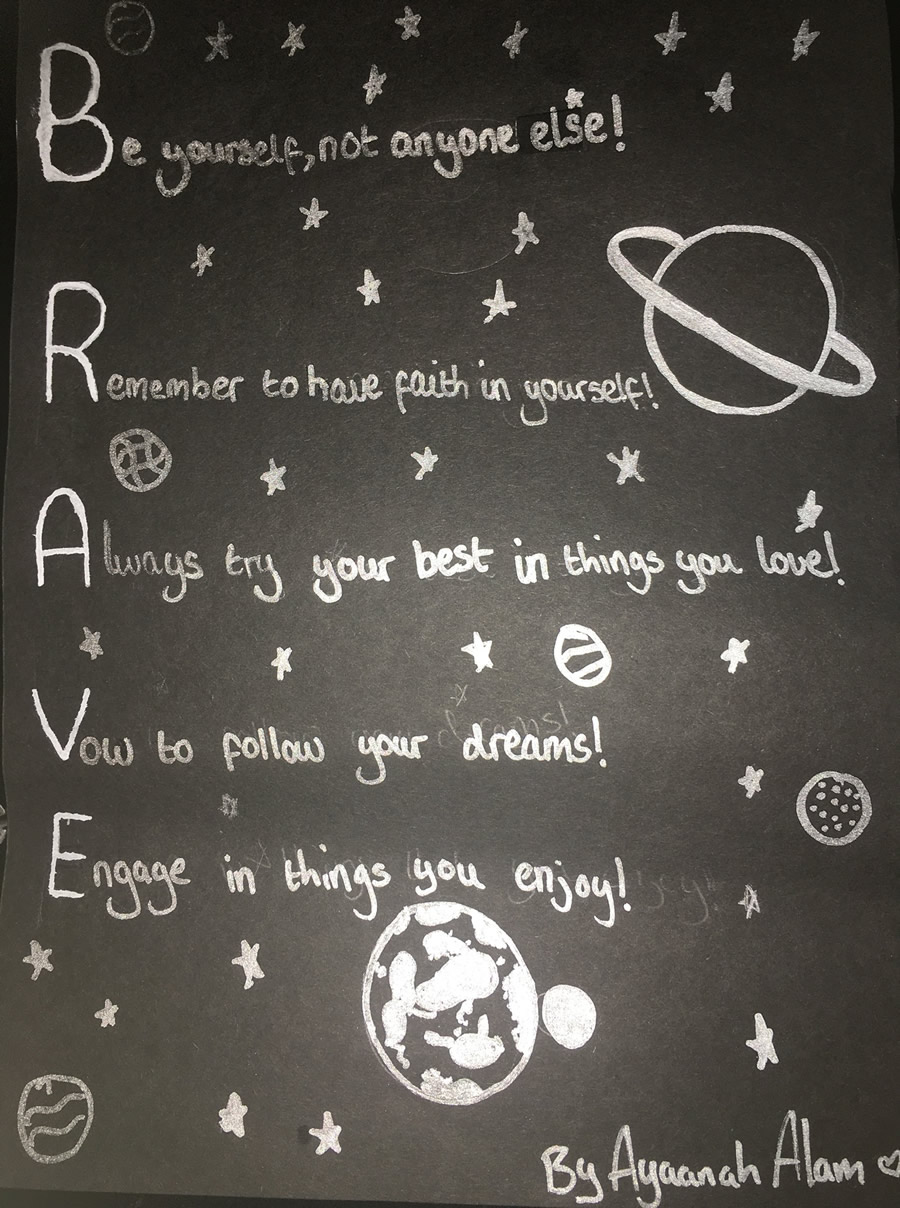 Be yourself, not anyone else!
Remember to have faith in yourself!
Always try your best in things you love!
Vow to follow your dreams!
Engage in things you enjoy!
By Ayaanah Alam ♡